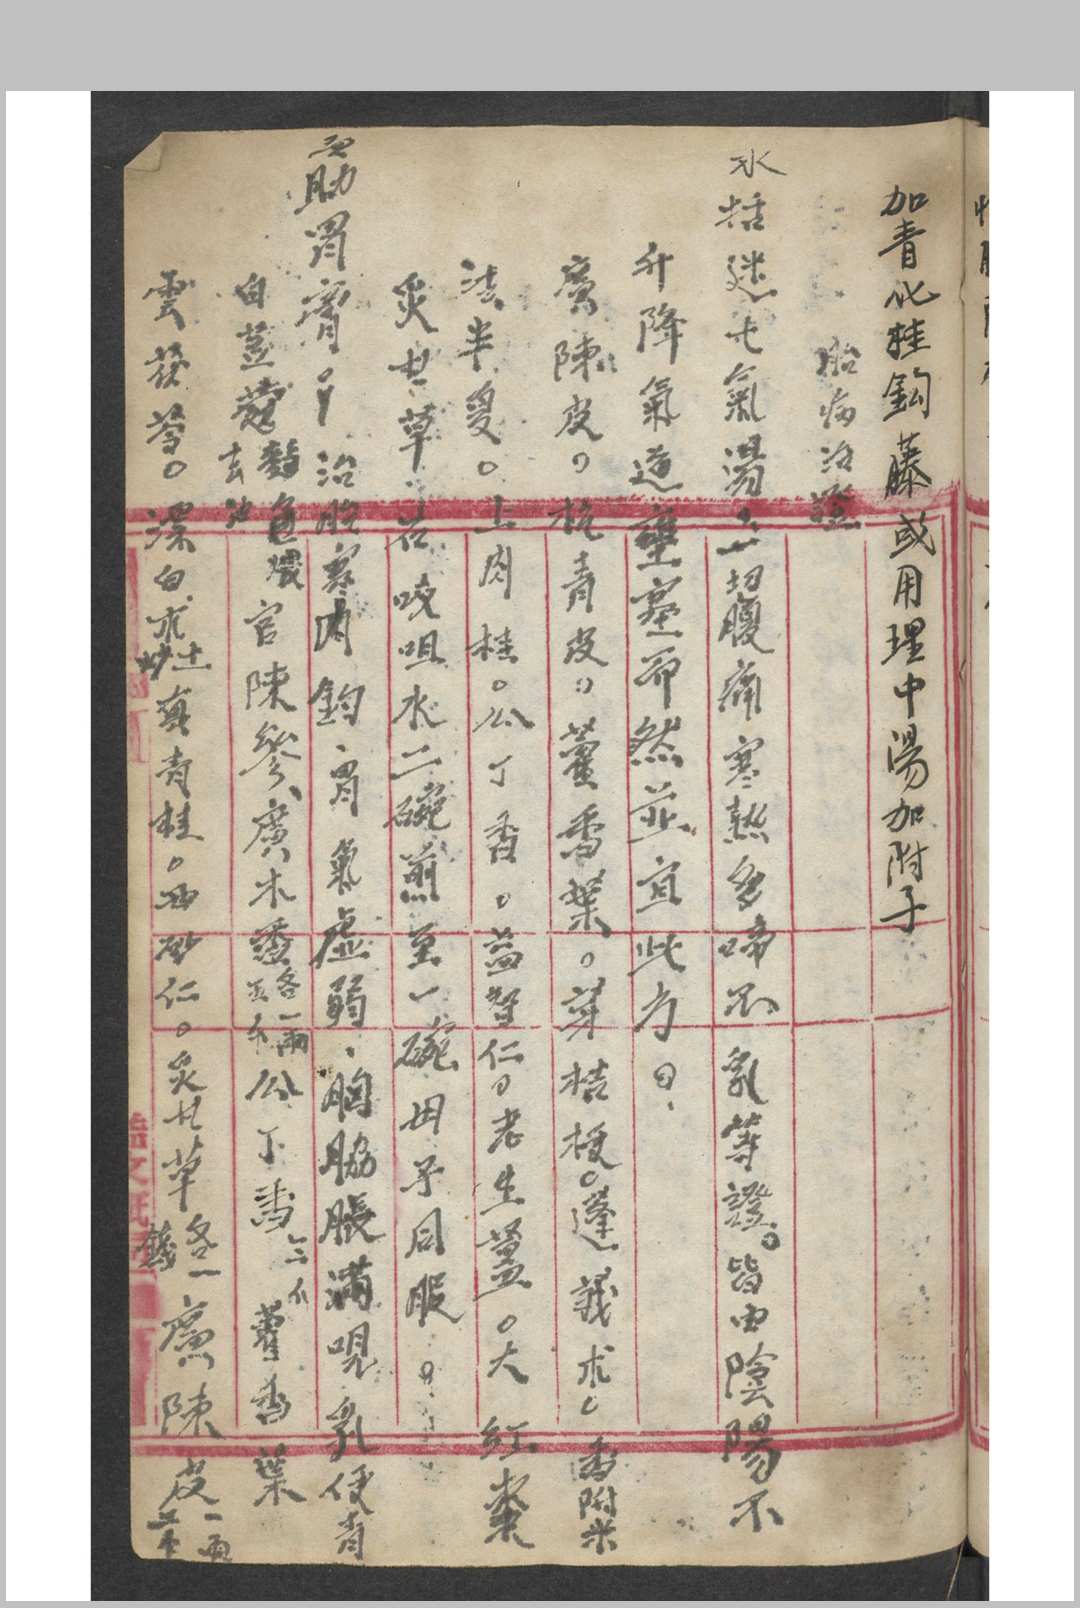 加青化桂鈎藤或用理中湯加附子
胎病治證
木捂迷七氣湯 一切腹痛寒熱多啼不乳等證。皆由陰陽不
升降氣道壅塞而然並宜此方。
廣陳皮。杭青皮。藿香葉。芽桔梗。蓬莪朮。香附米
法半夏。上肉桂。公丁香。益智仁。老生薑。大紅棗
炙甘草 右㕮咀水二碗煎至一碗毋子同服。
助胃膏 治胞寒內鈎胃氣虛弱胸脇脹滿哯乳便青
白荳蔻 去油 麵色煨 官陳參 廣木香 各一兩 公丁香 藿香葉
雲茯苓。漂白朮 土炒 真青桂。西砂仁。炙甘草 各一錢 廣陳皮 一兩